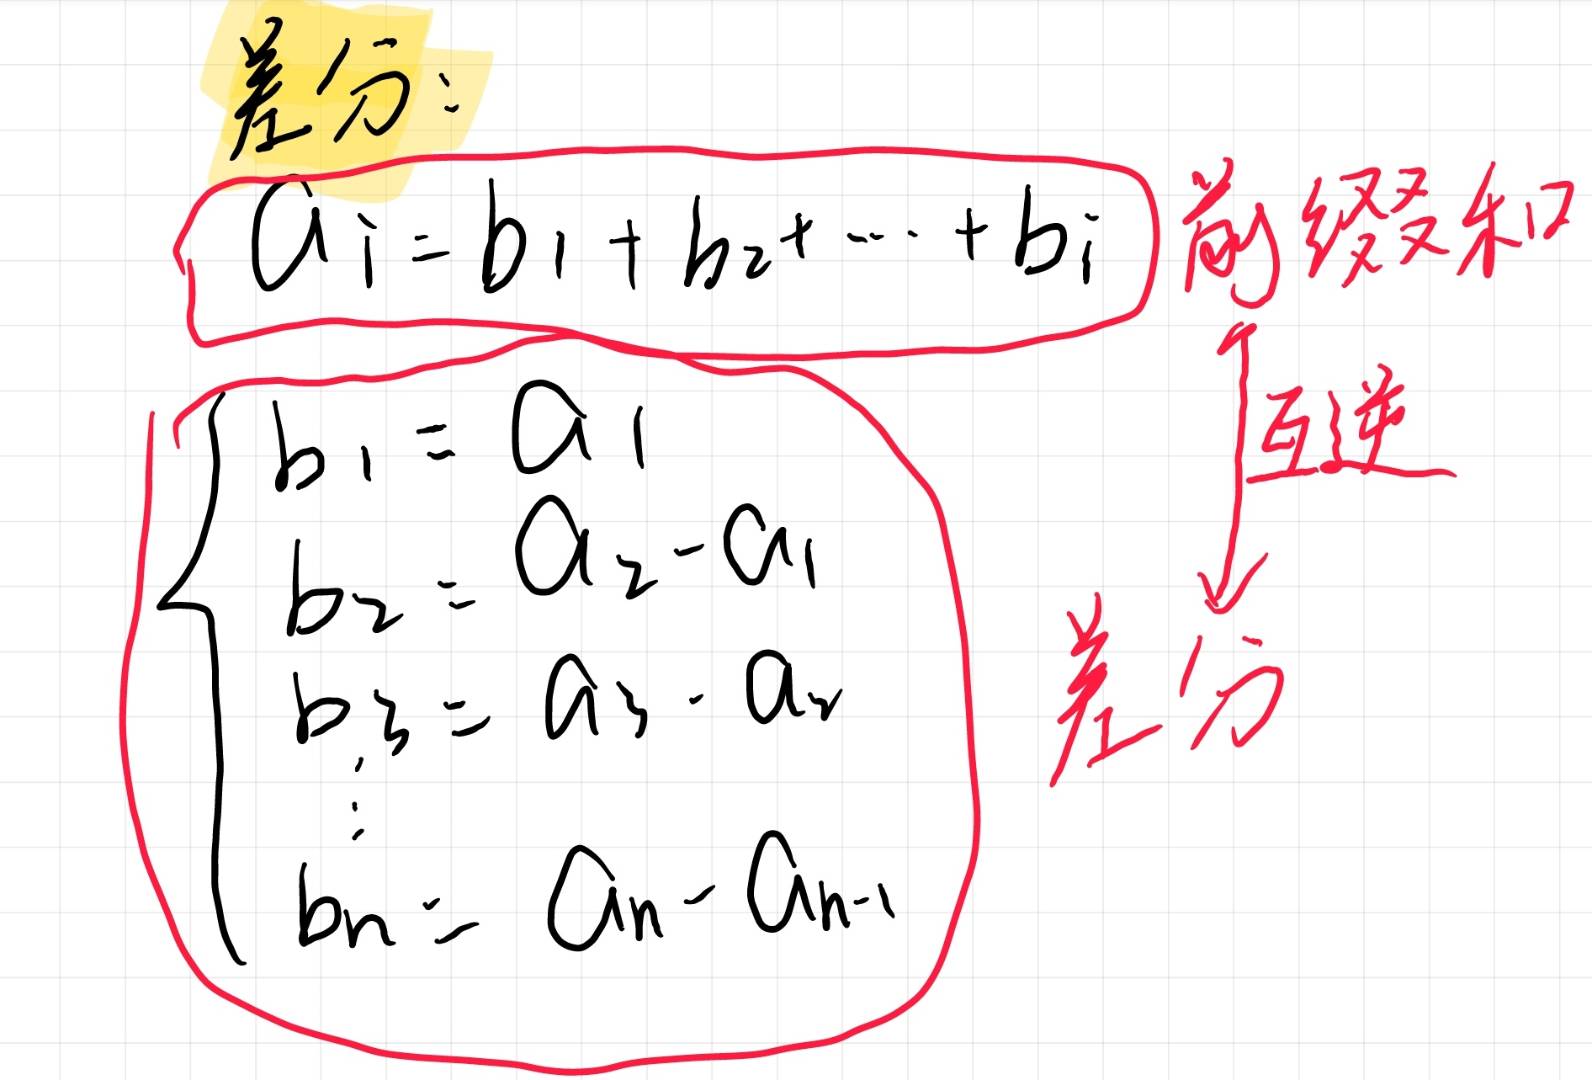 差分:
aᵢ = b₁ + b₂ + ··· + bᵢ
前缀和
互逆
b₁ = a₁
b₂ = a₂ - a₁
b₃ = a₃ - a₂
⋮
bₙ = aₙ - aₙ₋₁
差分